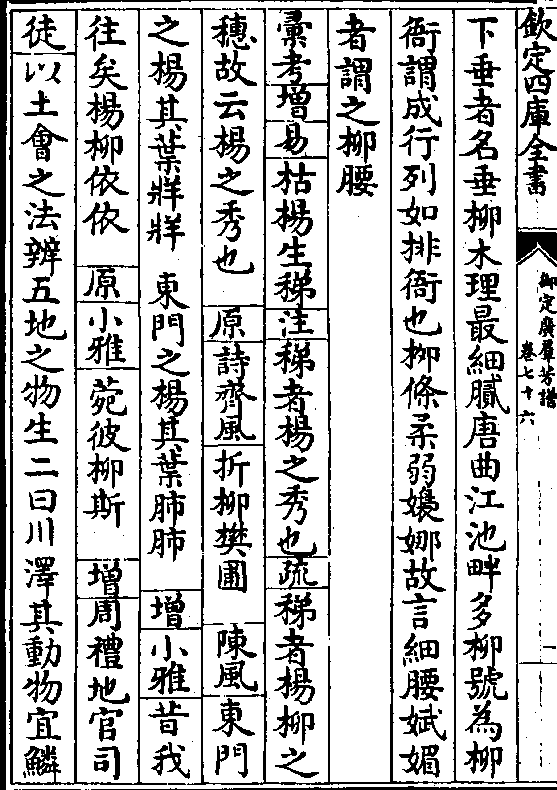 欽定四庫全書
御定廣羣芳譜
卷七十六
一
下垂者名垂柳木理最細膩唐曲江池畔多柳號為柳
衙謂成行列如排衙也柳條柔弱嬝娜故言細腰娬媚
者謂之柳腰
彚考增易枯楊生稊注稊者楊之秀也疏稊者楊柳之
穗故云楊之秀也 原詩齊風折柳樊圃 陳風東門
之楊其葉牂牂 東門之楊其葉肺肺 增小雅昔我
往矣楊柳依依 原小雅菀彼柳斯 增周禮地官司
徒以土會之法辨五地之物生二曰川澤其動物宜鱗